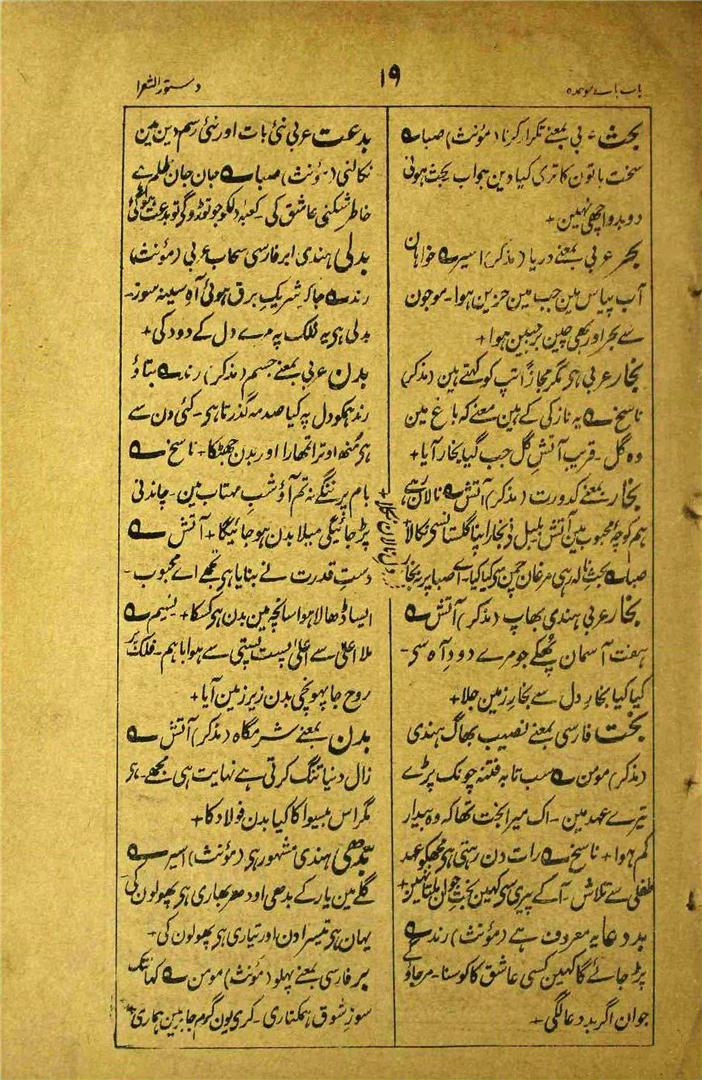 باب باے موحدہ
۱۹
دستور الشعرا
بحث عربی بمعنے تکرار کرنا (مؤنث) صباؔ
سخت باتون کا تری کیا دین جواب بحث ہوتی
دوبدو اچھی نہین +
بحر عربی بمعنے دریا (مذکر) اسیرؔ خواہان
آب پیاس مین جب مین حزین ہوا۔ موجون
سے بحر اور بھی چین برجبین ہوا +
بخار عربی ہی مگر مجازاً تپ کو کہتے ہین (مذکر)
ناسخؔ یہ نازکی کے ہین معنے کہ باغ مین
وہ گل۔ قریب آتش گل جب گیا بخار آیا +
بخار بمعنے کدورت (مذکر) آتشؔ نالان رہے
ہم کوچۂ محبوب مین آتش بلبل نے بخار اپنا گلستان سے نکالا
صباؔ بحث نالہ ہی مرغان چمن کو کیا کیا۔ اے صبا پر بخار
بخار عربی ہندی بھاپ (مذکر) آتشؔ
ہفت آسمان پھکے جو مرے دود آہ سے۔
کیا کیا بخار دل سے بخار زمین جلا +
بخت فارسی بمعنے نصیب بھاگ ہندی
(مذکر) مومنؔ سب تا بہ فتنہ چونک پڑے
تیرے عہد مین۔ اک میرا بخت تھا کہ وہ بیدار
کم ہوا + ناسخؔ رات دن رہتی ہی مجھکو عہد
طفلی سے تلاش۔ آکے پیری سی کہین بخت جوان ملتا نہین +
بد دعا یہ معروف ہے (مؤنث) رندؔ
پڑ جائے گا کہین کسی عاشق کا کوسنا۔ مر جاؤ گے
جوان اگر بد دعا لگی +
بدعت عربی نئی بات اور نئی رسم دین مین
نکالنی (مؤنث) صباؔ جان جان ظلم ہے
خاطر شکنی عاشق کی۔ کعبۂ دلکو جو توڑوگی تو بدعت ہوگی
بدلی ہندی ابر فارسی سحاب عربی (مؤنث)
رندؔ جا کر شریک برق ہوئی آہ سینہ سوز۔
بدلی ہی یہ فلک پہ مرے دل کے دود کی +
بدن عربی بمعنے جسم (مذکر) رندؔ بتاؤ
رند ہمکو دل پہ کیا صدمہ گذرتا ہی۔ کئی دن سے
ہی منھ اوترا تمھارا اور بدن جھٹکا + ناسخؔ
بام پر ننگے نہ تم آؤ شب مہتاب مین۔ چاندنی
پڑ جائیگی میلا بدن ہو جائیگا + آتشؔ
دست قدرت نے بنایا ہی تجھے اے محبوب۔
ایسا ڈھالا ہوا سانچہ مین بدن ہی کسکا + نسیمؔ
ملا اعلیٰ سے اعلیٰ پست پستی سے ہوا باہم۔ فلک پر
روح جا پہونچی بدن زیر زمین آیا +
بدن بمعنے شرمگاہ (مذکر) آتشؔ
زال دنیا تنگ کرتی ہے نہایت ہی مجھے۔ ہی
مگر اس بیسوا کا کیا بدن فولاد کا +
بدّھی ہندی مشہور ہی (مؤنث) اسیرؔ
گلے مین یار کے بدھی اودھر بھاری ہی پھولون کی
یہان ہی تیسرا دن اور تیاری ہی پھولون کی +
بر فارسی بمعنے پہلو (مؤنث) مومنؔ کہانتک
سوز شوق ہمکناری۔ کری یون گرم جا بر مین ہماری